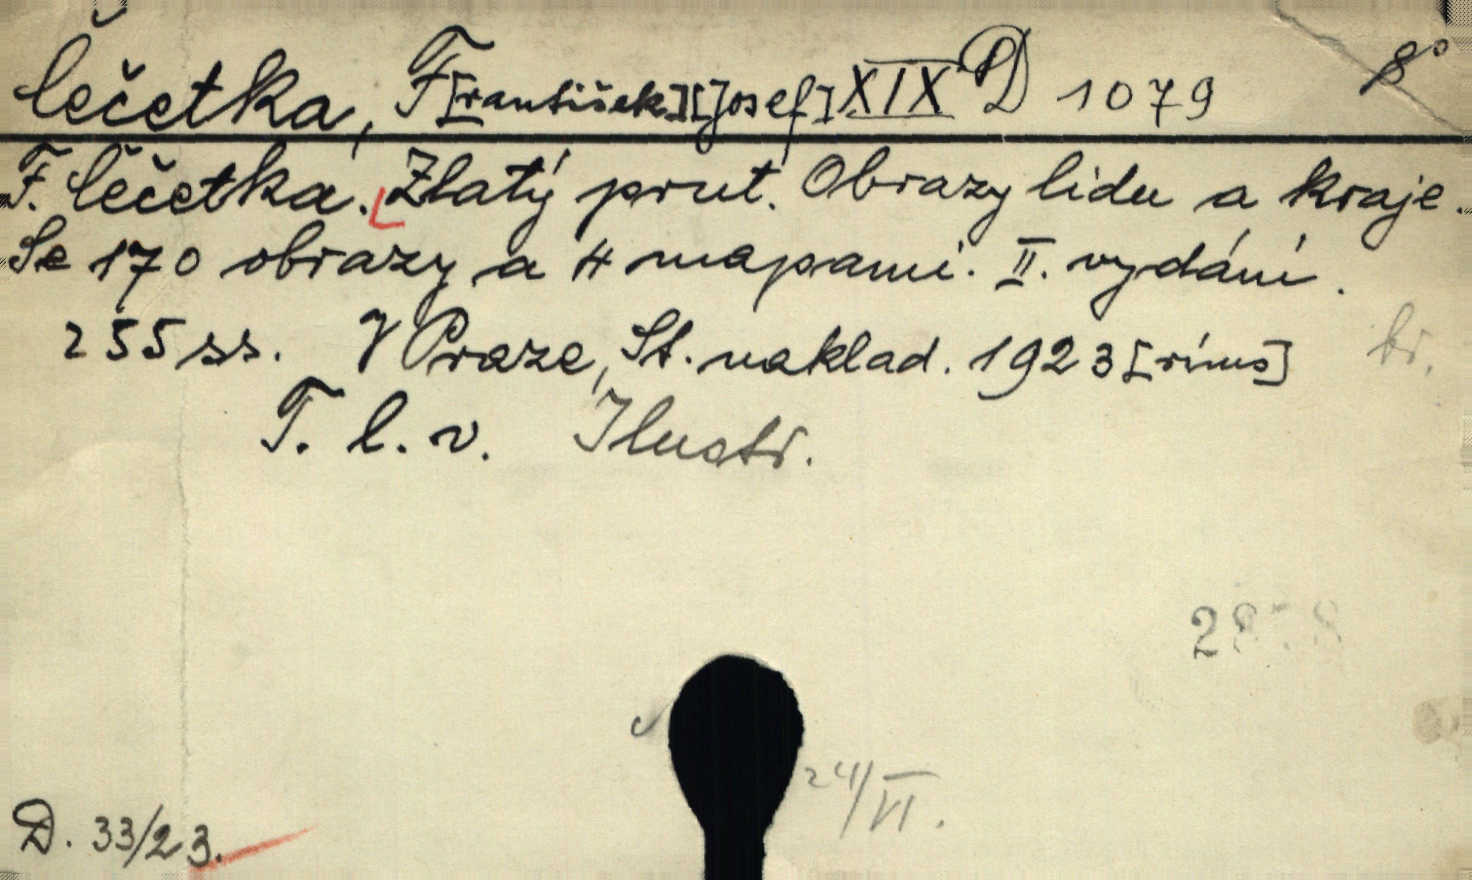 Čečetka, F[rantišek][Josef] XIX D 1079 8°
F. Čečetka. Zlatý prut. Obrazy lidu a kraje.
Se 170 obrazy a 4 mapami. II. vydání.
255 ss. V Praze, St. naklad. 1923 [rims] br.
T. l. v. Ilustr.
24/VI.
D. 33/23.